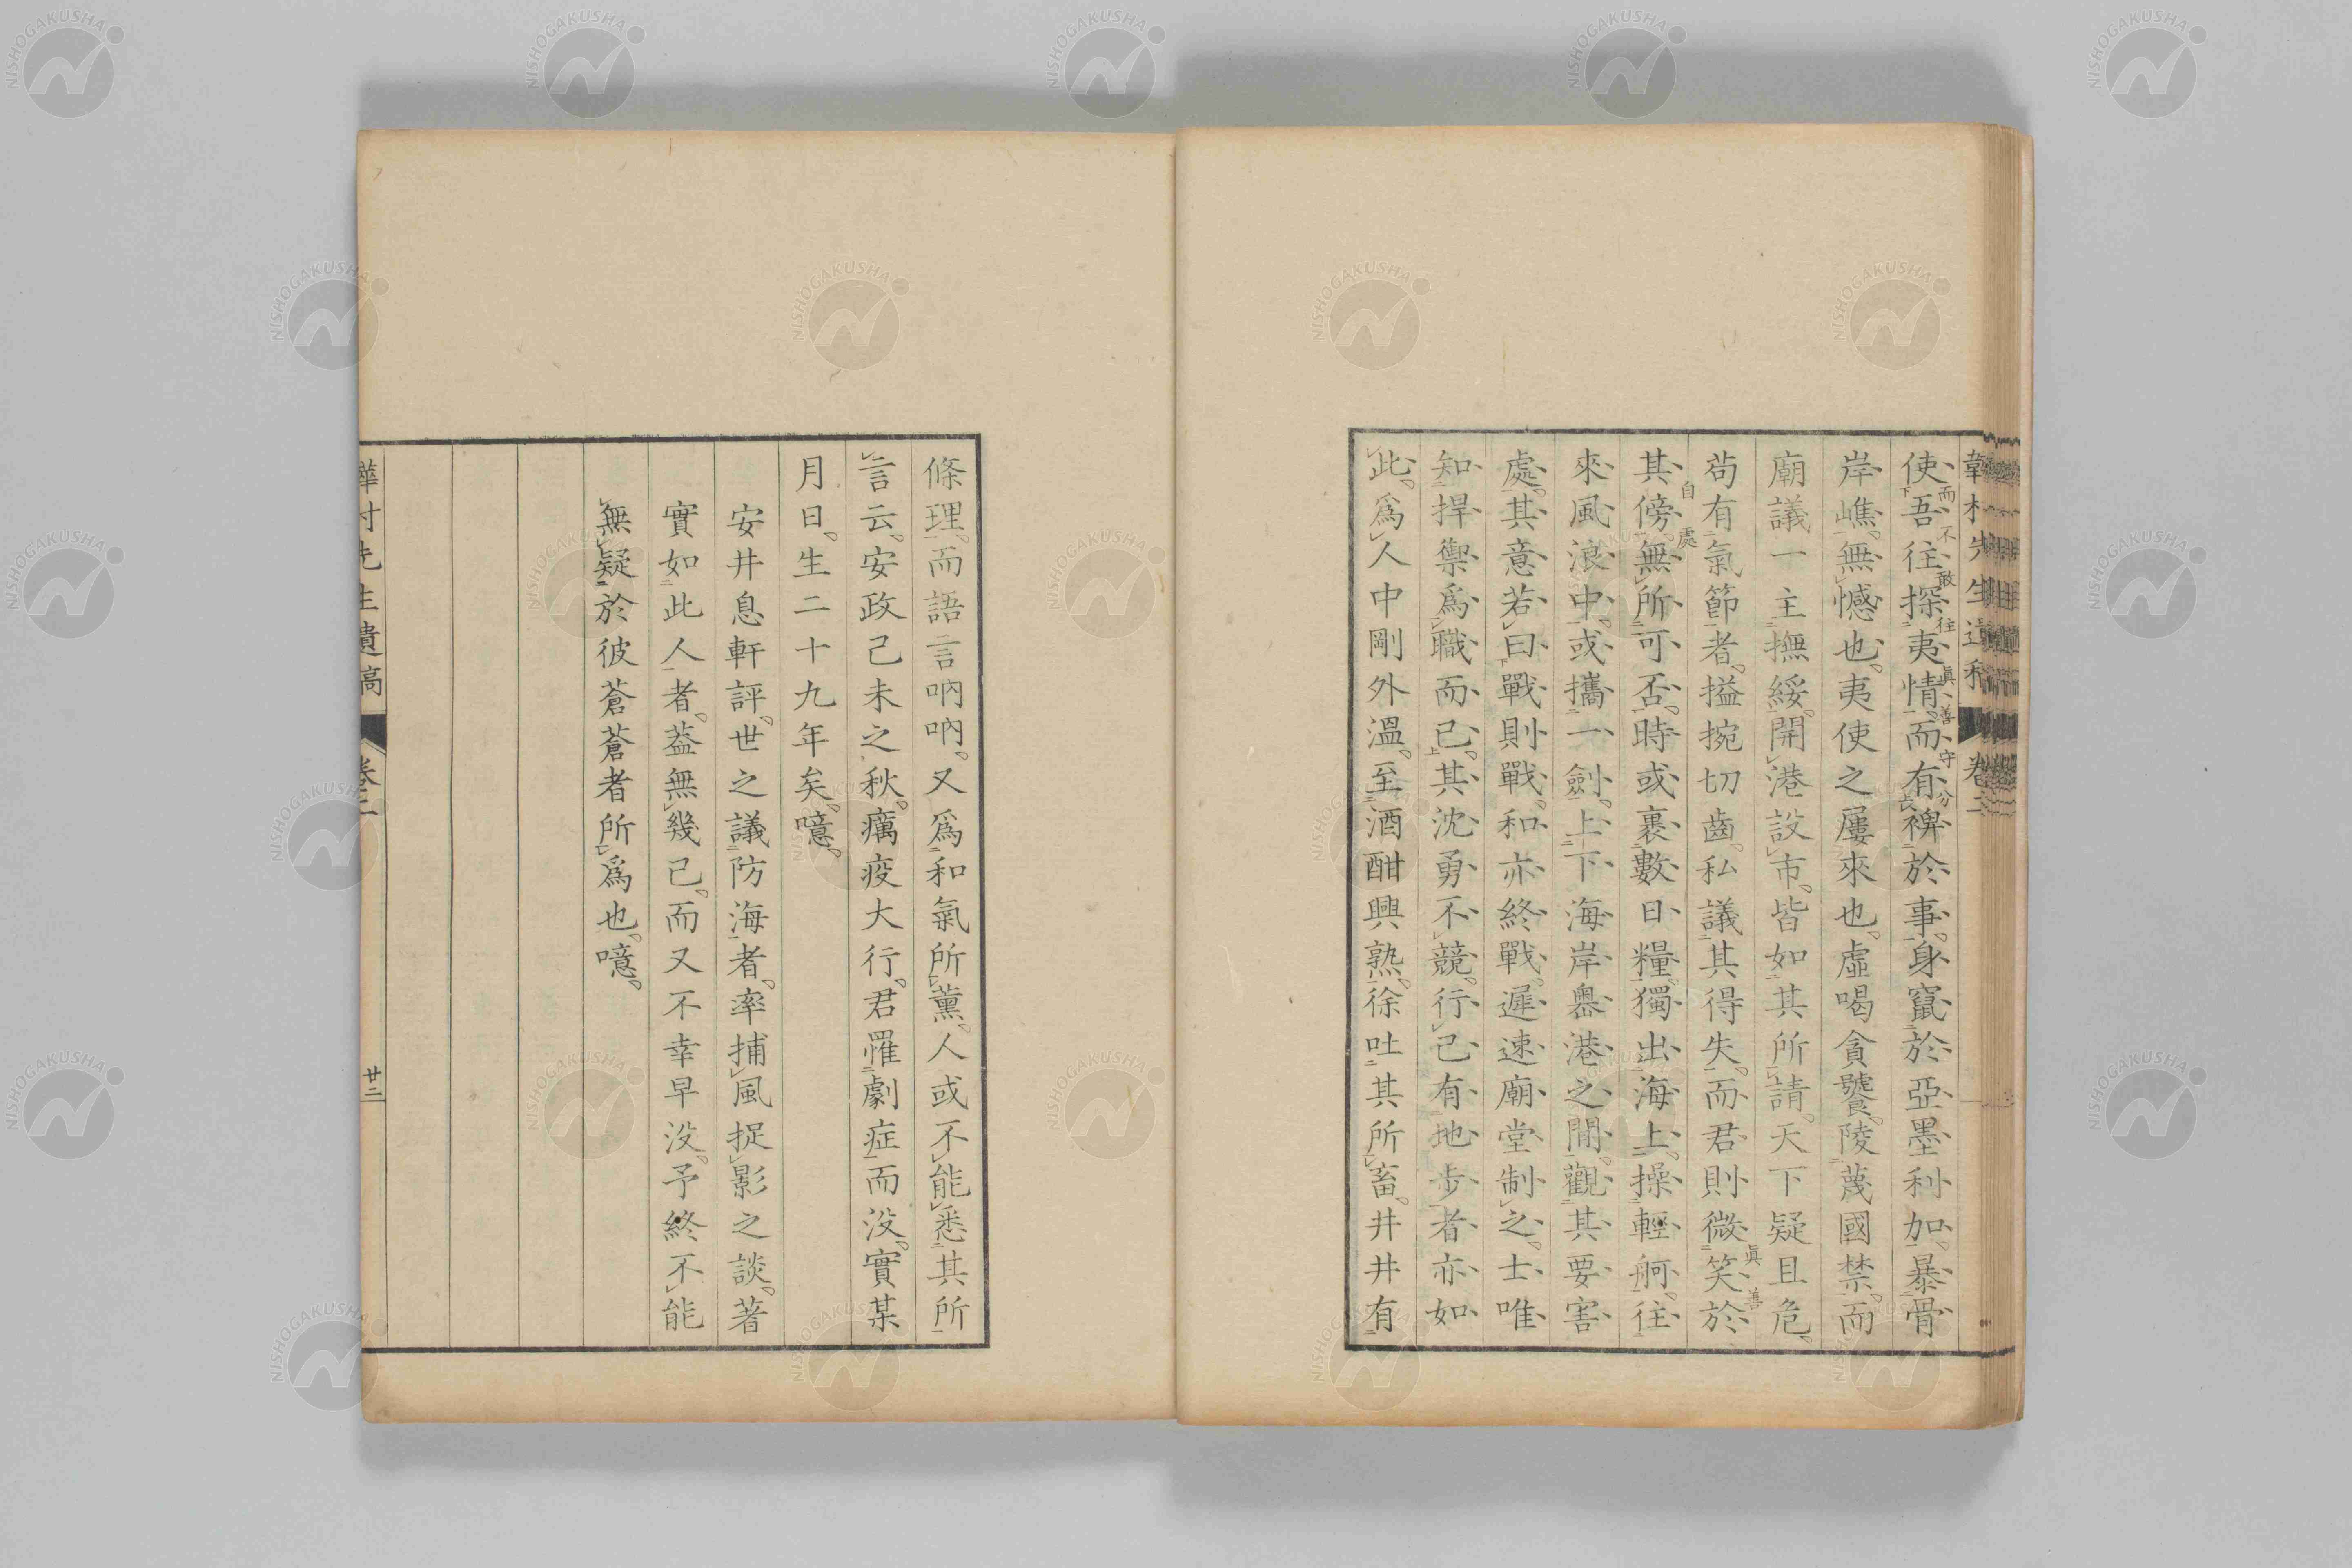 韡村先生遺稿 卷二
使吾往探夷情。而有裨於事。身竄於亞墨利加。暴骨
而不敢往眞善守分
岸嶕。無憾也。夷使之屢來也。虛喝貪饕。陵蔑國禁。而
廟議一主撫綏。開港設市。皆如其所請。天下疑且危。
苟有氣節者。搤捥切齒。私議其得失。而君則微笑於
眞善
其傍。無所可否。時或裹數日糧。獨出海上。操輕舸。往
自處
來風浪中。或攜一劍。上下海岸嶴港之間。觀其要害
處。其意若曰。戰則戰。和亦終戰。遲速廟堂制之。士唯
知捍禦爲職而已。其沈勇不競。行己有地步者亦如
此。爲人中剛外溫。至酒酣興熟。徐吐其所畜。井井有
條理。而語言吶吶。又爲和氣所薰。人或不能悉其所
言云。安政己未之秋。癘疫大行。君罹劇症而沒。實某
月日。生二十九年矣。噫。
安井息軒評。世之議防海者。率捕風捉影之談。著
實如此人者。葢無幾已。而又不幸早沒。予終不能
無疑於彼蒼蒼者所爲也。噫。
韡村先生遺稿 卷二 廿二